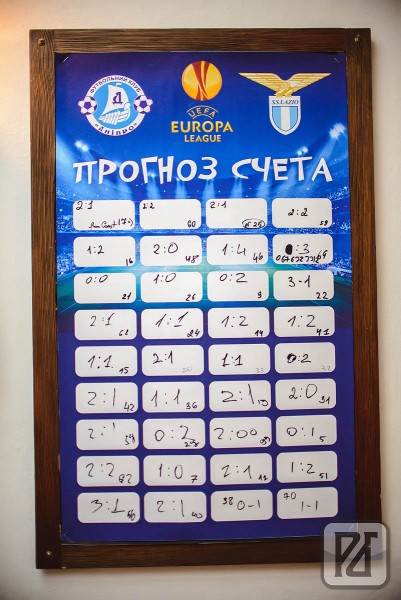 ФУТБОЛЬНИЙ КЛУБ
Д
«ДНІПРО»
UEFA
EUROPA
LEAGUE
S.S. LAZIO
ПРОГНОЗ СЧЕТА
2:1 2:2 2:1 2:2
60 59
1:2 2:0 1:4 :3
16 48 46
0:0 1:0 0:2 3-1
21 26 9 22
2:1 1:1 1:2 1:2
62 24 14 41
1:1 2:1 1:1 0:2
15 33
2:1 1:1 2:1 2:0
42 36 10 31
2:1 0:2 2:0 0:1
39 5
2:2 1:0 2:1 1:2
92 7 12 51
3:1 2:1 38 0-1 70 1-1